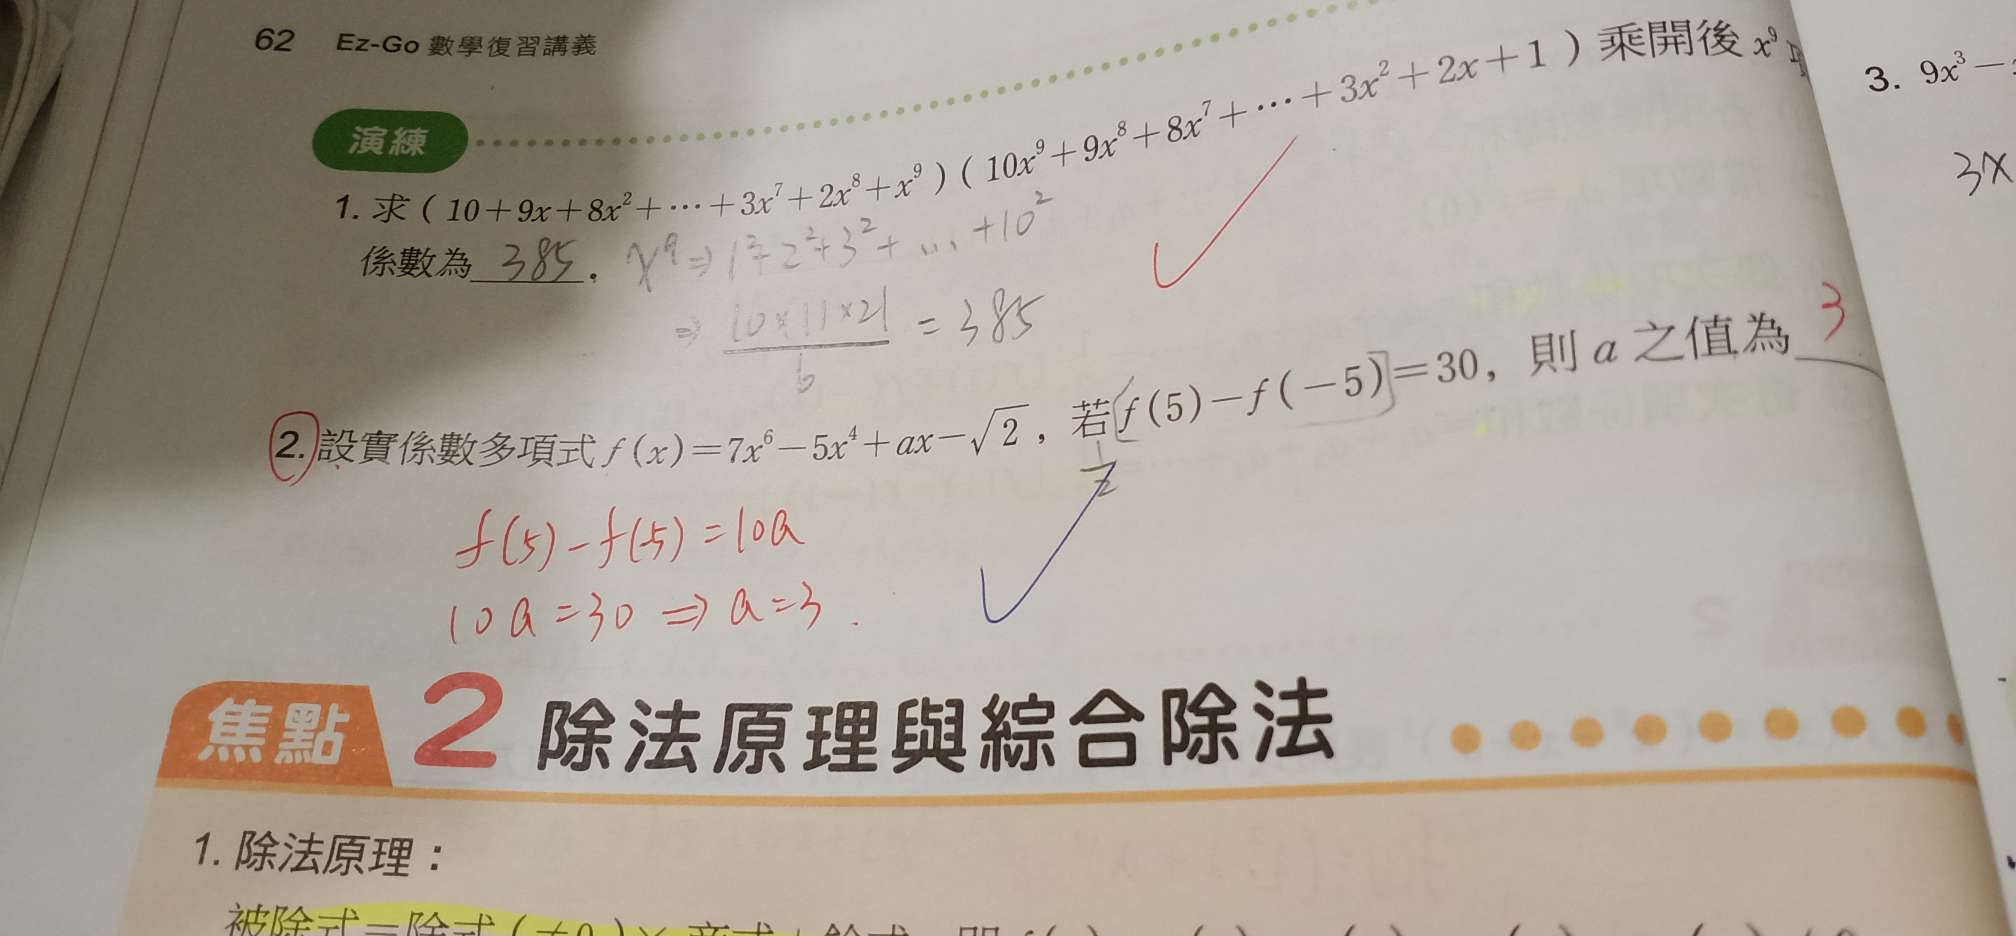 62 Ez-Go 數學復習講義
演練
1. 求 ( 10 + 9x + 8x² + ⋯ + 3x⁷ + 2x⁸ + x⁹ ) ( 10x⁹ + 9x⁸ + 8x⁷ + ⋯ + 3x² + 2x + 1 ) 乘開後 x⁹
係數為 385 .
x⁹ ⇒ 1² + 2² + 3² + ... + 10²
⇒ 10×11×21 / 6 = 385
2. 設實係數多項式 f (x) = 7x⁶ − 5x⁴ + ax − √2 , 若 f (5) − f (−5) = 30, 則 a 之值為 3
1/2
f(5) − f(-5) = 10a
10a = 30 ⇒ a = 3 .
焦點 2 除法原理與綜合除法
1. 除法原理：
被除式＝除式 (≠0) ×
3. 9x³ −
3x